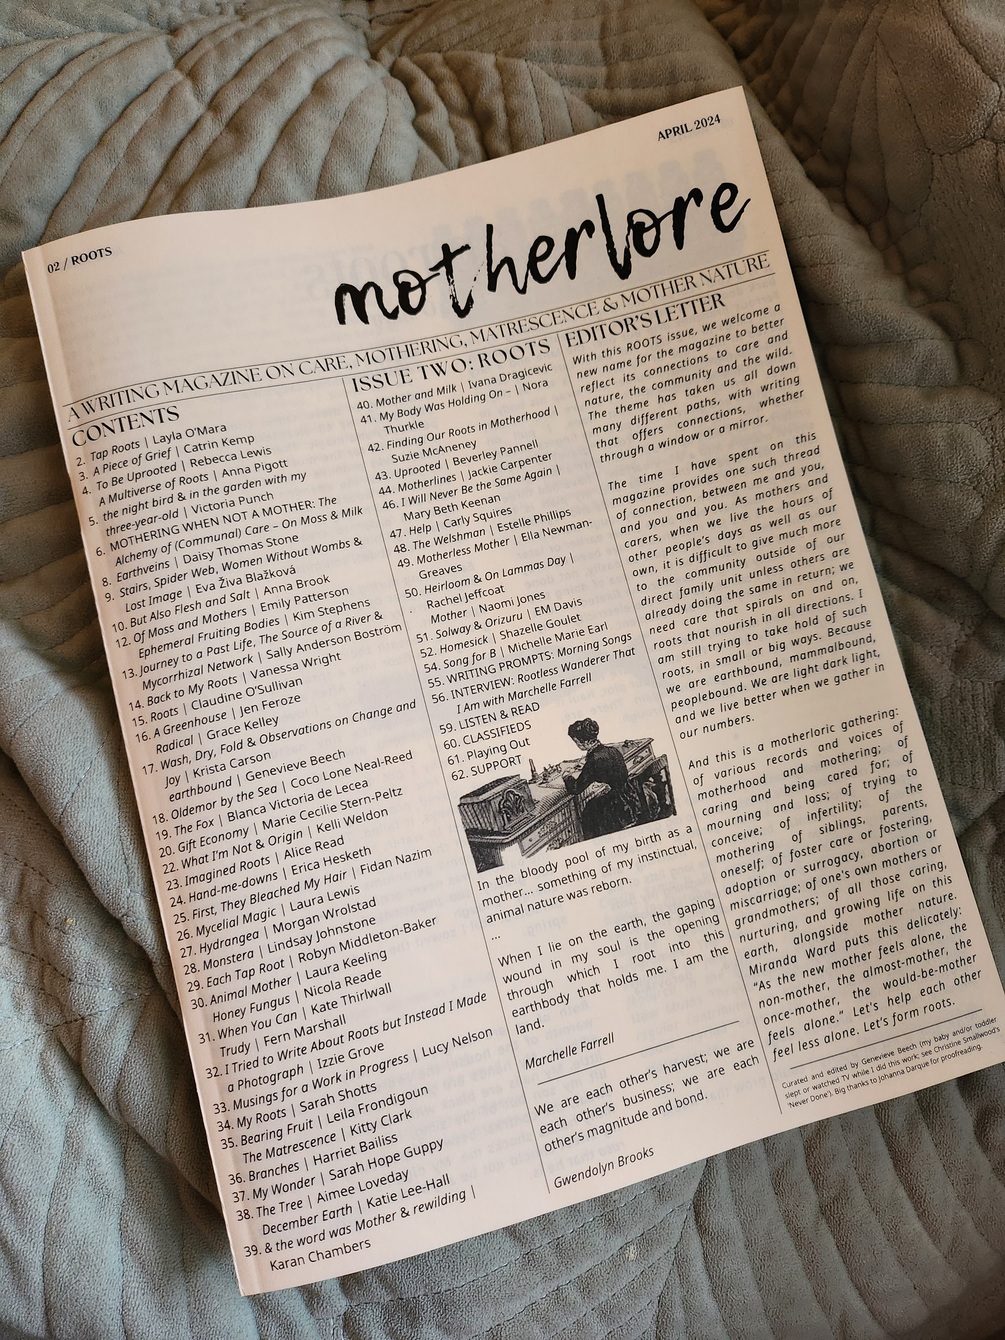 APRIL 2024
02 / ROOTS
motherlore
A WRITING MAGAZINE ON CARE, MOTHERING, MATRESCENCE & MOTHER NATURE
CONTENTS
2. Tap Roots | Layla O'Mara
3. A Piece of Grief | Catrin Kemp
4. To Be Uprooted | Rebecca Lewis
A Multiverse of Roots | Anna Pigott
5. the night bird & in the garden with my
three-year-old | Victoria Punch
6. MOTHERING WHEN NOT A MOTHER: The
Alchemy of (Communal) Care – On Moss & Milk
8. Earthveins | Daisy Thomas Stone
9. Stairs, Spider Web, Women Without Wombs &
Lost Image | Eva Živa Blažková
10. But Also Flesh and Salt | Anna Brook
12. Of Moss and Mothers | Emily Patterson
Ephemeral Fruiting Bodies | Kim Stephens
13. Journey to a Past Life, The Source of a River &
Mycorrhizal Network | Sally Anderson Boström
14. Back to My Roots | Vanessa Wright
15. Roots | Claudine O'Sullivan
16. A Greenhouse | Jen Feroze
Radical | Grace Kelley
17. Wash, Dry, Fold & Observations on Change and
Joy | Krista Carson
earthbound | Genevieve Beech
18. Oldemor by the Sea | Coco Lone Neal-Reed
19. The Fox | Blanca Victoria de Lecea
20. Gift Economy | Marie Cecilie Stern-Peltz
22. What I'm Not & Origin | Kelli Weldon
23. Imagined Roots | Alice Read
24. Hand-me-downs | Erica Hesketh
25. First, They Bleached My Hair | Fidan Nazim
26. Mycelial Magic | Laura Lewis
27. Hydrangea | Morgan Wrolstad
28. Monstera | Lindsay Johnstone
29. Each Tap Root | Robyn Middleton-Baker
30. Animal Mother | Laura Keeling
Honey Fungus | Nicola Reade
31. When You Can | Kate Thirlwall
Trudy | Fern Marshall
32. I Tried to Write About Roots but Instead I Made
a Photograph | Izzie Grove
33. Musings for a Work in Progress | Lucy Nelson
34. My Roots | Sarah Shotts
35. Bearing Fruit | Leila Frondigoun
The Matrescence | Kitty Clark
36. Branches | Harriet Bailiss
37. My Wonder | Sarah Hope Guppy
38. The Tree | Aimee Loveday
December Earth | Katie Lee-Hall
39. & the word was Mother & rewilding |
Karan Chambers
ISSUE TWO: ROOTS
40. Mother and Milk | Ivana Dragicevic
41. My Body Was Holding On – | Nora
Thurkle
42. Finding Our Roots in Motherhood |
Suzie McAneney
43. Uprooted | Beverley Pannell
44. Motherlines | Jackie Carpenter
46. I Will Never Be the Same Again |
Mary Beth Keenan
47. Help | Carly Squires
48. The Welshman | Estelle Phillips
49. Motherless Mother | Ella Newman-
Greaves
50. Heirloom & On Lammas Day |
Rachel Jeffcoat
. Mother | Naomi Jones
51. Solway & Orizuru | EM Davis
52. Homesick | Shazelle Goulet
54. Song for B | Michelle Marie Earl
55. WRITING PROMPTS: Morning Songs
56. INTERVIEW: Rootless Wanderer That
I Am with Marchelle Farrell
59. LISTEN & READ
60. CLASSIFIEDS
61. Playing Out
62. SUPPORT
In the bloody pool of my birth as a
mother... something of my instinctual,
animal nature was reborn.
...
When I lie on the earth, the gaping
wound in my soul is the opening
through which I root into this
earthbody that holds me. I am the
land.
Marchelle Farrell
We are each other's harvest; we are
each other's business; we are each
other's magnitude and bond.
Gwendolyn Brooks
EDITOR'S LETTER
With this ROOTS issue, we welcome a
new name for the magazine to better
reflect its connections to care and
nature, the community and the wild.
The theme has taken us all down
many different paths, with writing
that offers connections, whether
through a window or a mirror.
The time I have spent on this
magazine provides one such thread
of connection, between me and you,
and you and you. As mothers and
carers, when we live the hours of
other people's days as well as our
own, it is difficult to give much more
to the community outside of our
direct family unit unless others are
already doing the same in return; we
need care that spirals on and on,
roots that nourish in all directions. I
am still trying to take hold of such
roots, in small or big ways. Because
we are earthbound, mammalbound,
peoplebound. We are light dark light,
and we live better when we gather in
our numbers.
And this is a motherloric gathering:
of various records and voices of
motherhood and mothering; of
caring and being cared for; of
mourning and loss; of trying to
conceive; of infertility; of the
mothering of siblings, parents,
oneself; of foster care or fostering,
adoption or surrogacy, abortion or
miscarriage; of one's own mothers or
grandmothers; of all those caring,
nurturing, and growing life on this
earth, alongside mother nature.
Miranda Ward puts this delicately:
"As the new mother feels alone, the
non-mother, the almost-mother, the
once-mother, the would-be-mother
feels alone." Let's help each other
feel less alone. Let's form roots.
Curated and edited by Genevieve Beech (my baby and/or toddler
slept or watched TV while I did this work; see Christine Smallwood's
'Never Done'). Big thanks to Johanna Darque for proofreading.